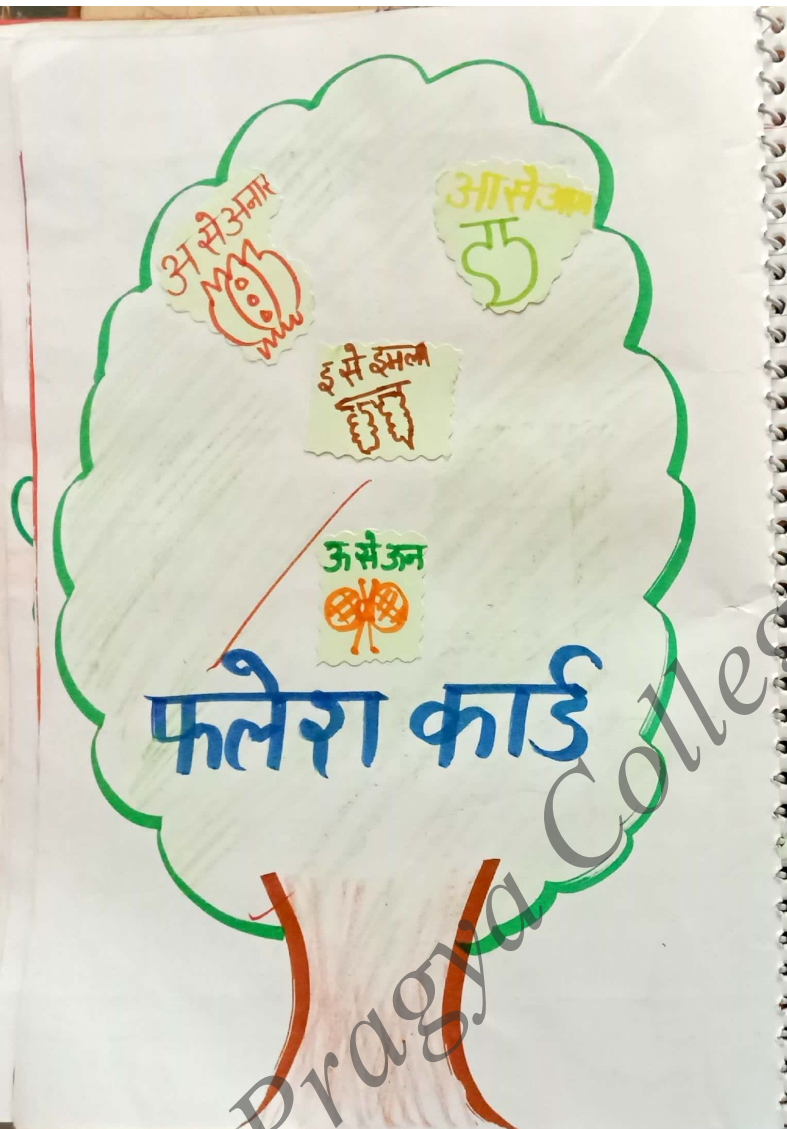 अ से अनार
आ से आम
इ से इमली
ऊ से ऊन
फलेश कार्ड
Pragya Colleg